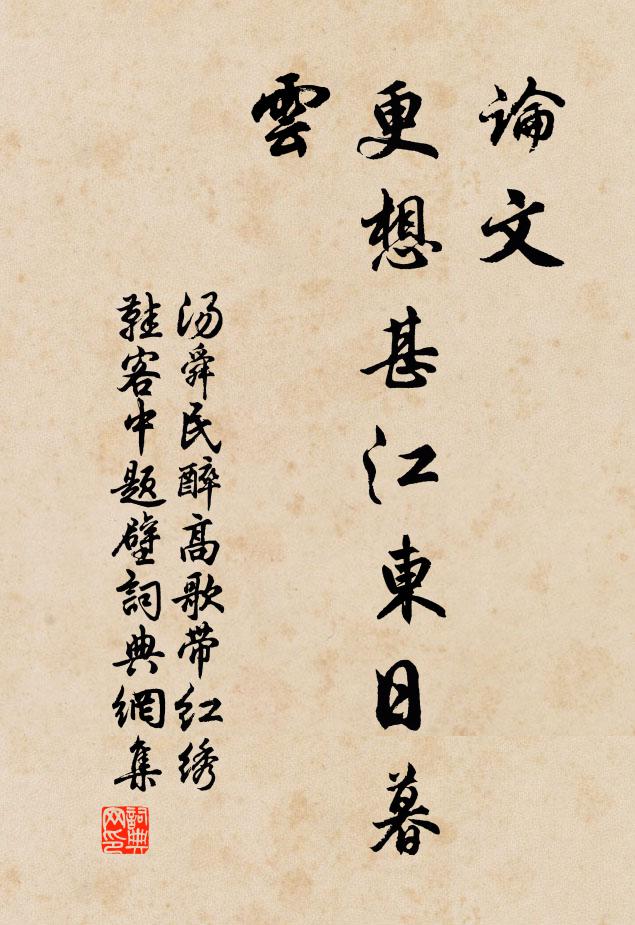 論文
更想甚江東日暮
雲
汤舜民醉高歌带红绣
鞋客中题壁詞典網集
詞典
网印